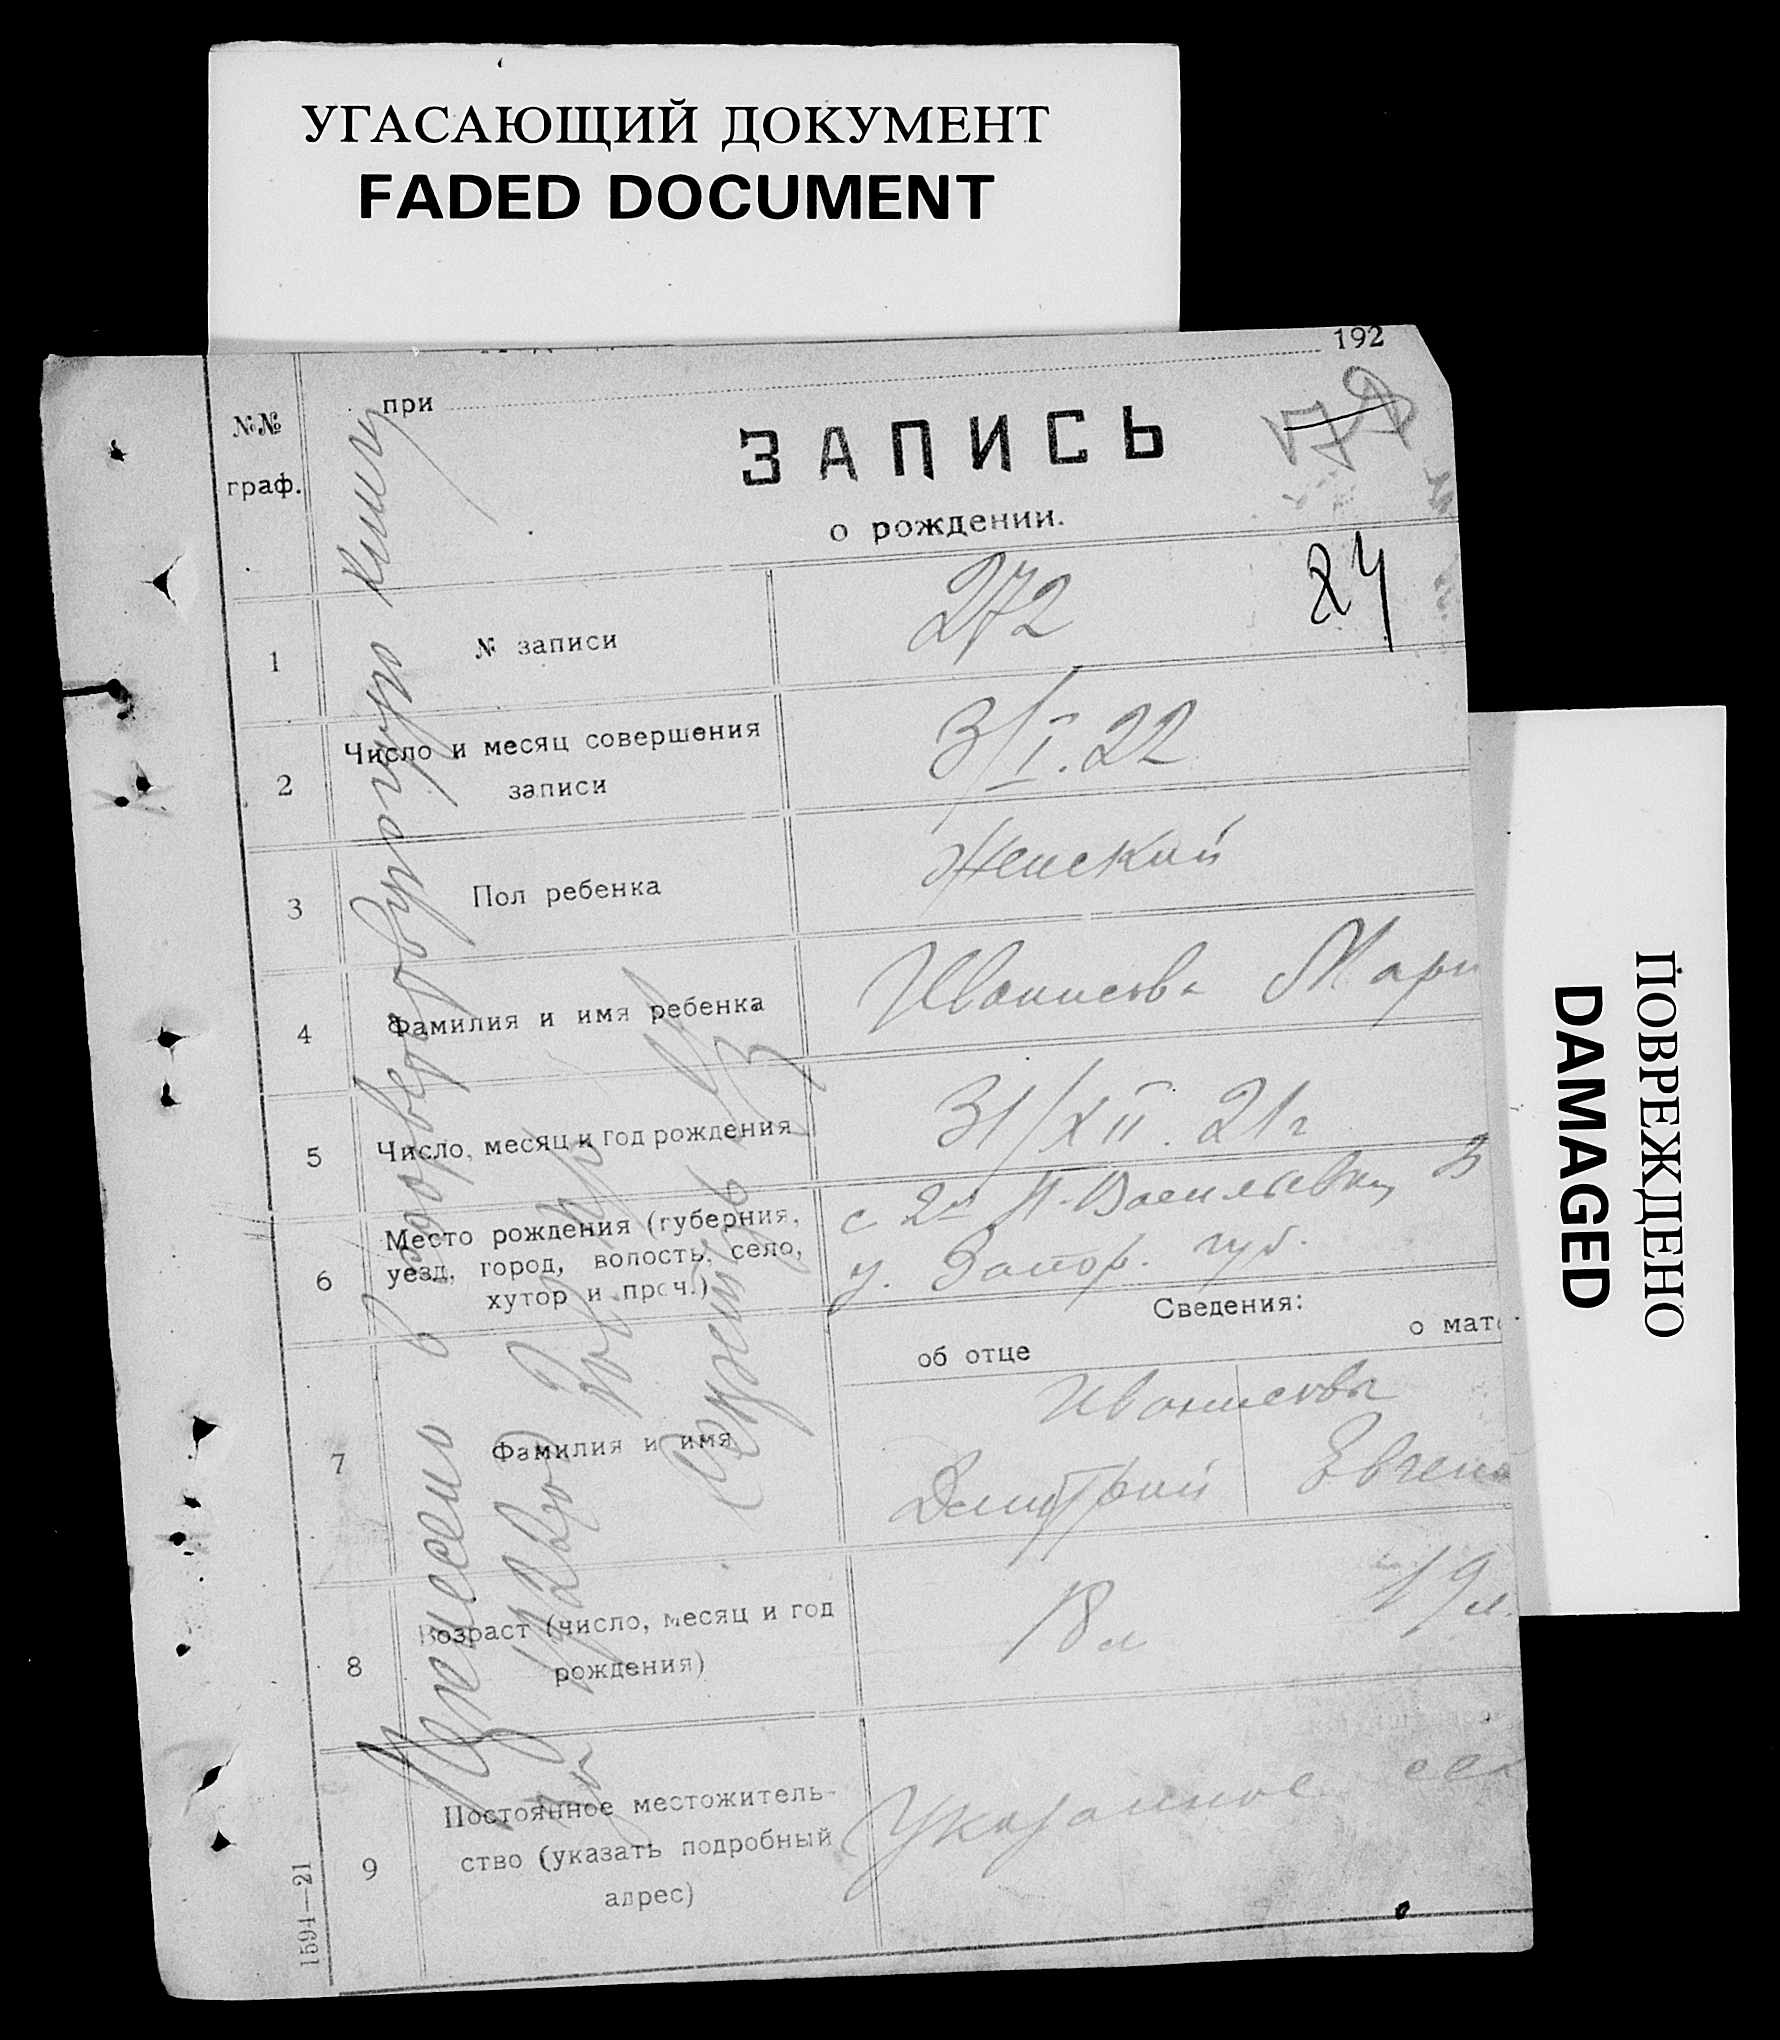 УГАСАЮЩИЙ ДОКУМЕНТ
FADED DOCUMENT
192
при
№№
граф.
ЗАПИСЬ
о рождении.
24
1 № записи 272
2 Число и месяц совершения
записи 3/I.22
3 Пол ребенка Женский
4 Фамилия и имя ребенка Мари
5 Число, месяц и год рождения 31/XII.21г
6 Место рождения (губерния,
уезд, город, волость, село,
хутор и проч.)
с 2ая Н-Васильевка З
у. Запор. губ.
Сведения:
об отце о мате
7 Фамилия и имя
Дмитрий Евгени
8 Возраст (число, месяц и год
рождения)
18 л 19 л.
9 Постоянное местожитель-
ство (указать подробный
адрес)
Указанное сел
1594—21
Внесено в
книгу
ПОВРЕЖДЕНО
DAMAGED